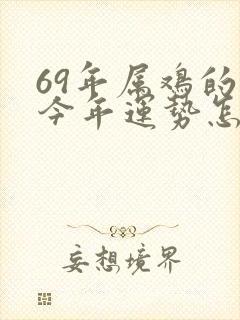 69年属鸡的
今年运势怎
妄想境界